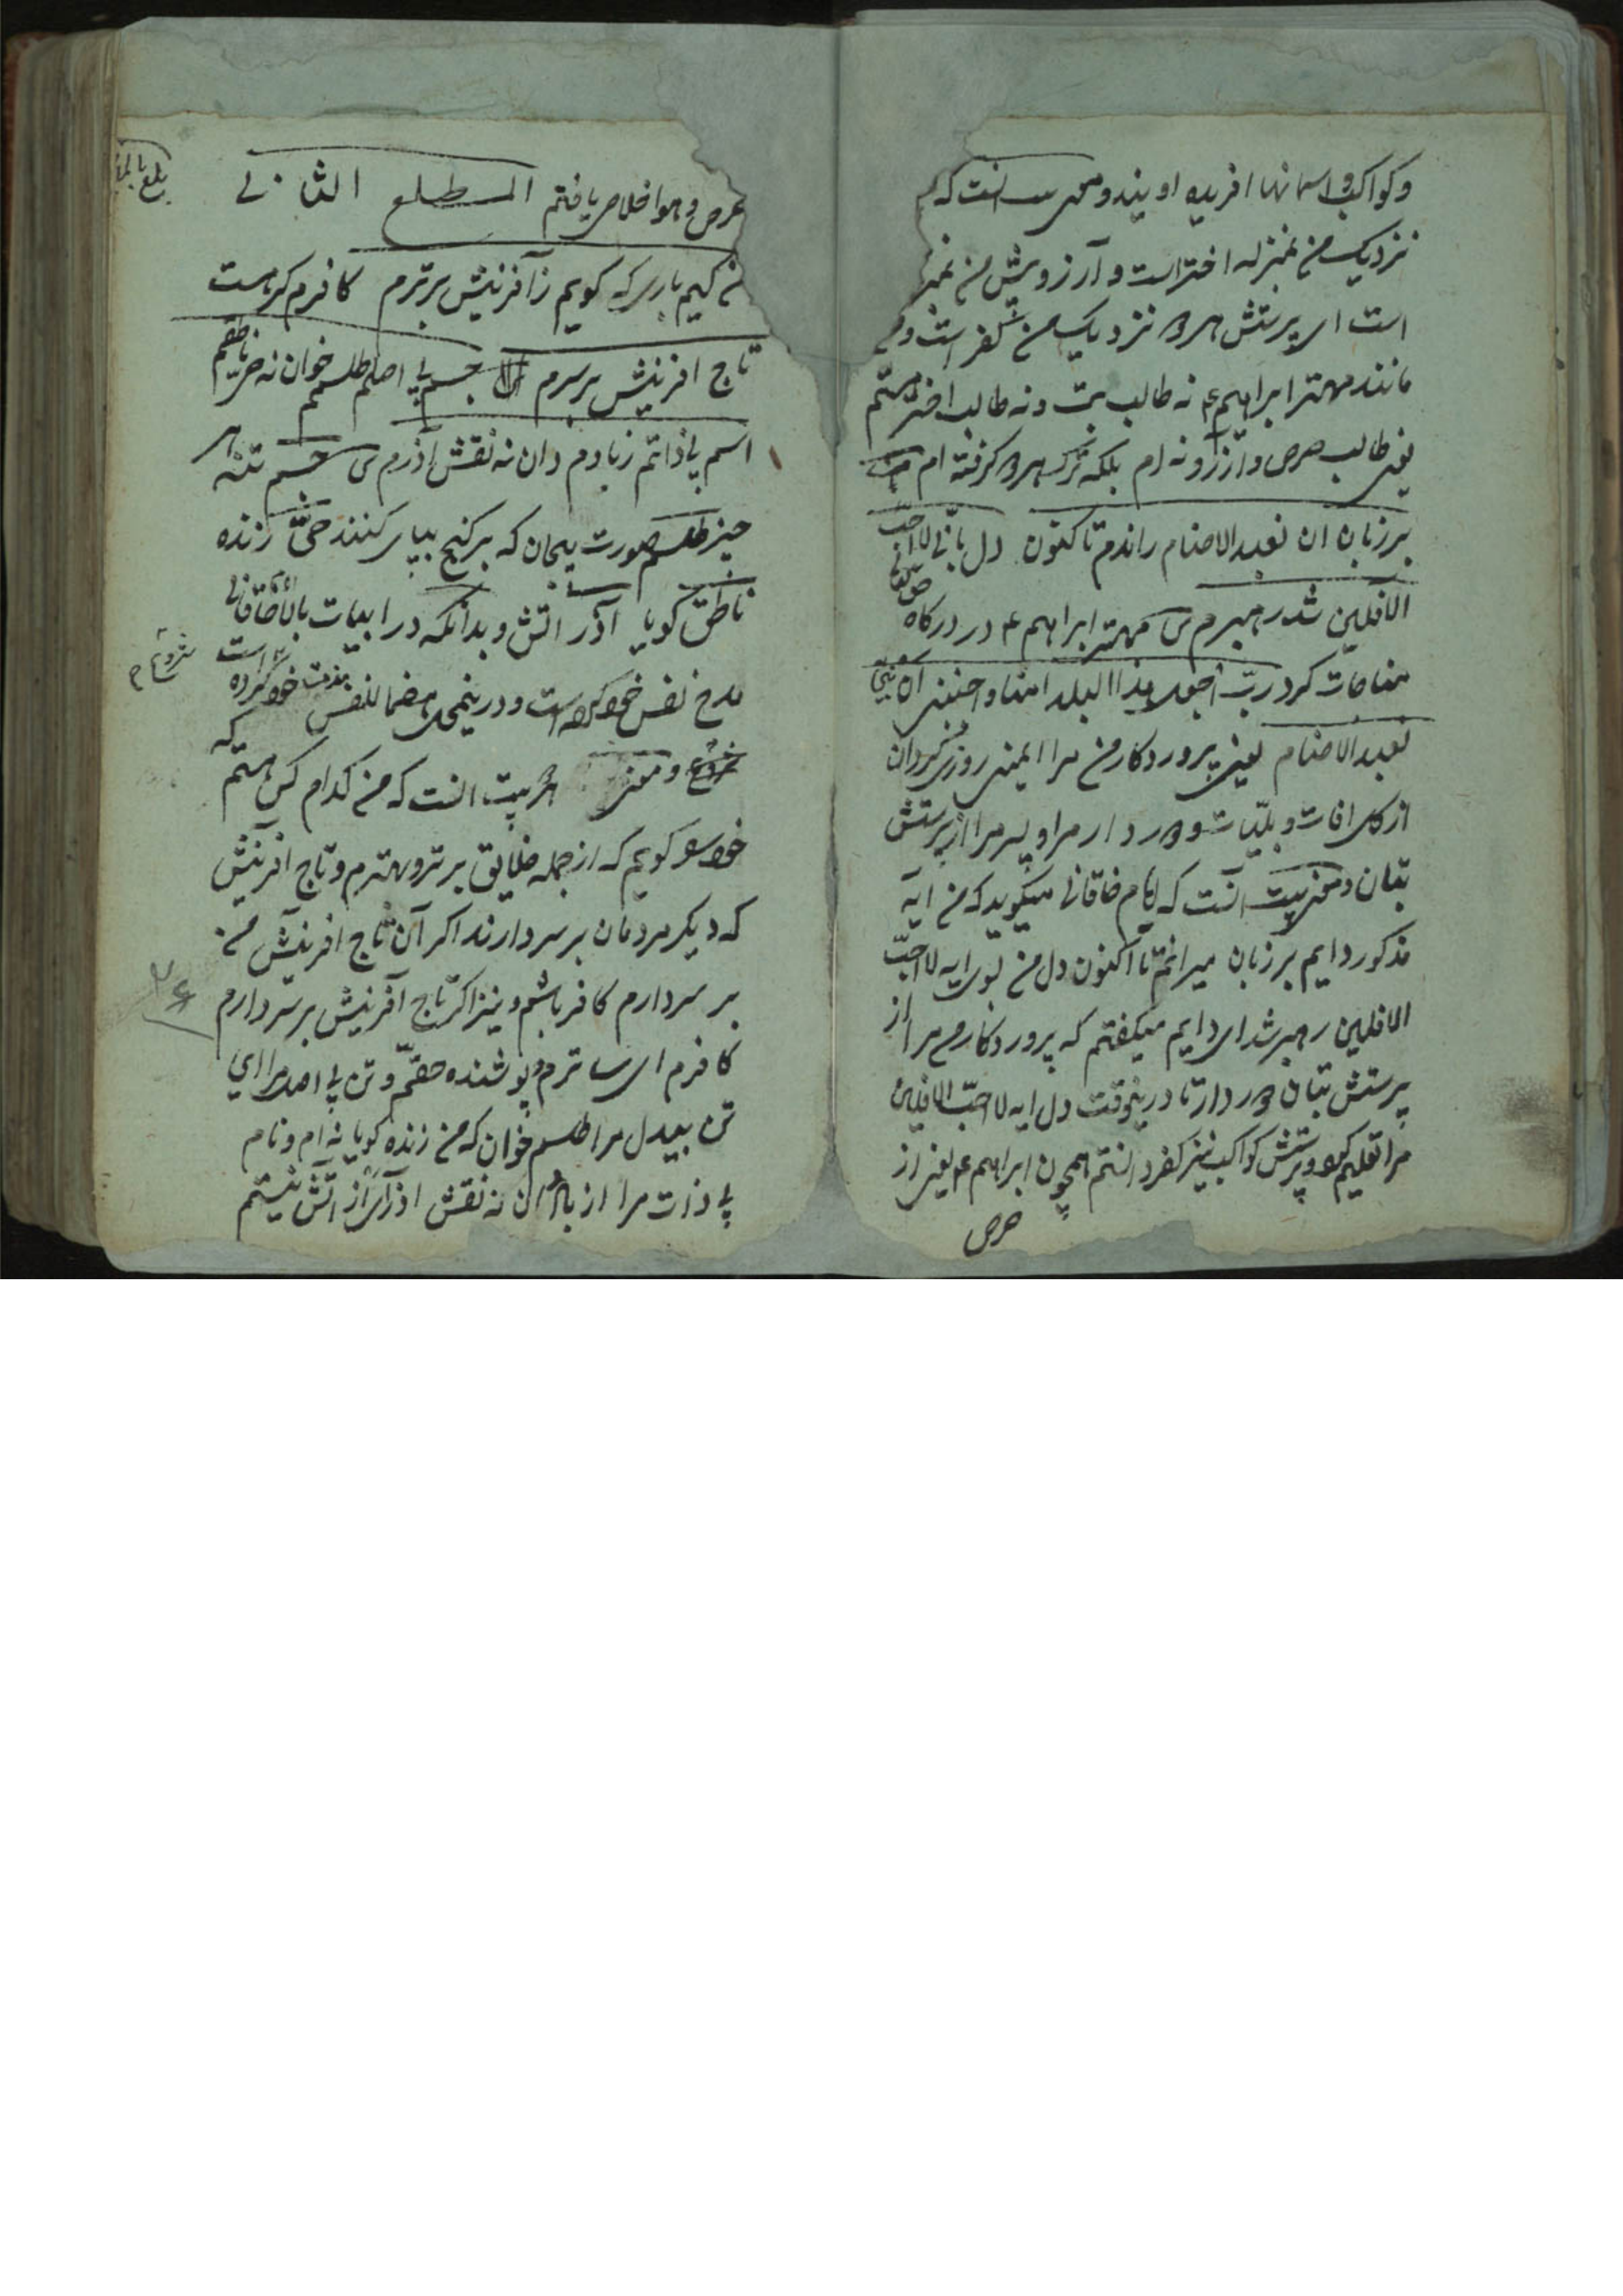 وکواکب و اسمانها افریده اویند و معنی انست که
نزدیک من بمنزله اختر است و آرزو پیش من
است ای پرستش هر دو نزدیک من کفر است و
مانند مهتر ابراهیم ع نه طالب بت و نه طالب اختر هستم
یعنی طالب حرص و آرزو نه ام بلکه ترک هر دو کرفته ام
بر زبان ان نعبد الاصنام راندم تا کنون دل بانی لا احب
الافلین شد رهبرم ش مهتر ابراهیم ع در درکاه
مناجات کرد رب اجعل هذا البلد امنا و اجنبنی ان
نعبد الاصنام یعنی پروردکار من مرا ایمنی روزی کردان
از کل افات و بلیات و دور دار مرا و پسر مرا از پرستش
بتان و معنی بیت آنست که امام خاقانی میکوید که من ایه
مذکور دایم بر زبان میرانم تا اکنون دل من بسوی ایه لا احب
الافلین رهبر شد ای دایم میکفتم که پروردکار من مرا از
پرستش بتان دور دار تا درینوقت دل ایه لا احب الافلین
مرا تعلیم کرد و پرستش کواکب نیز کفر دانستم همچون ابراهیم ع یعنی از
حرص
حرص و هوا خلاص یافتم المطلع الثانی
من کیم باری که کویم ز آفرینش برترم کافرم کر هست
تاج افرینش بر سرم جسم بی اصلم طلسم خوان نه حی ناطقم
اسم بی ذاتم ز بادم دان نه نقش آذرم ش جسم تنه هر
چیز طلسم صورت بیجان که بر کنج بپای کنند حی زنده
ناطق کویا آذر اتش و بدانکه در ابیات بالا خاقانی
مدح نفس خود کرده است و درینجا هضما للنفس مذمت خود کرده است
شروع و معنی بیت انست که من کدام کس هستم که
خود را کویم که از جمله خلایق برتر و بهترم و تاج افرینش
که دیکر مردمان بر سر دارند اکر آن تاج افرینش من
بر سر دارم کافر باشم و نیز اکر تاج آفرینش بر سر دارم
کافرم ای ساترم و پوشنده حقم و تن بی اصل مرا ای
تن بیدل مرا طلسم خوان که من زنده کویا نه ام و نام
بی ذات مرا از باد دان نه نقش اذر ای از اتش نیستم